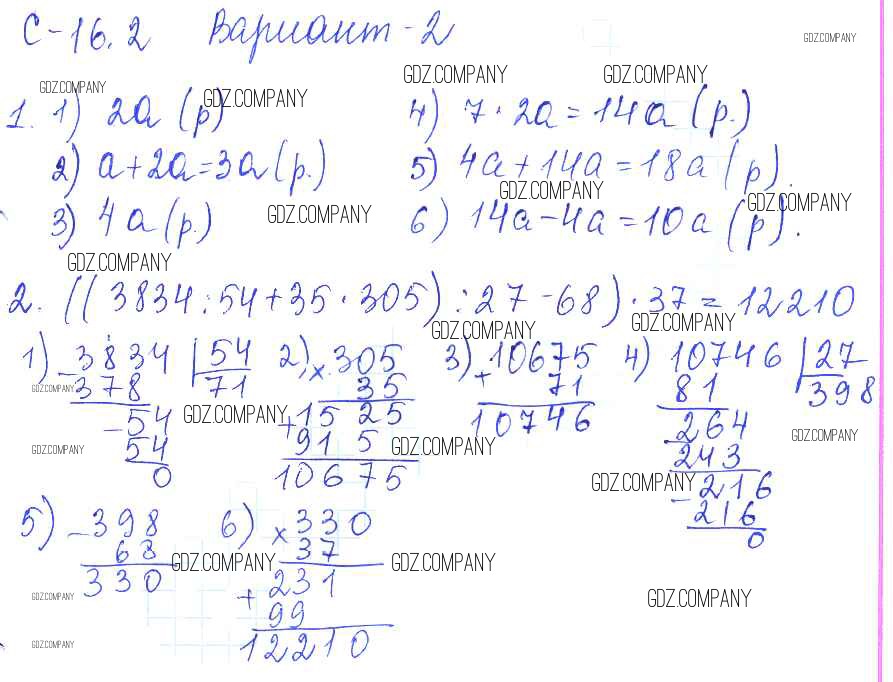 С-16.2 Вариант-2
GDZ.COMPANY
GDZ.COMPANY GDZ.COMPANY
GDZ.COMPANY GDZ.COMPANY
1. 1) 2а (р) 4) 7·2а=14а (р.)
2) а+2а=3а(р.) 5) 4а+14а=18а(р).
GDZ.COMPANY GDZ.COMPANY
3) 4а(р.) GDZ.COMPANY 6) 14а-4а=10а (р).
GDZ.COMPANY
2. ((3834:54+35·305):27-68)·37=12210
GDZ.COMPANY GDZ.COMPANY
1) -3834 54 2) ×305 3) +10675 4) 10746 27
378 71 35 71 81 398
GDZ.COMPANY GDZ.COMPANY
-54 +1525 10746 264
GDZ.COMPANY
54 915 GDZ.COMPANY 243
GDZ.COMPANY
0 10675 -216
GDZ.COMPANY
216
0
5) -398 6) ×330
68 37
GDZ.COMPANY GDZ.COMPANY
330 +231
GDZ.COMPANY GDZ.COMPANY
99
GDZ.COMPANY 12210